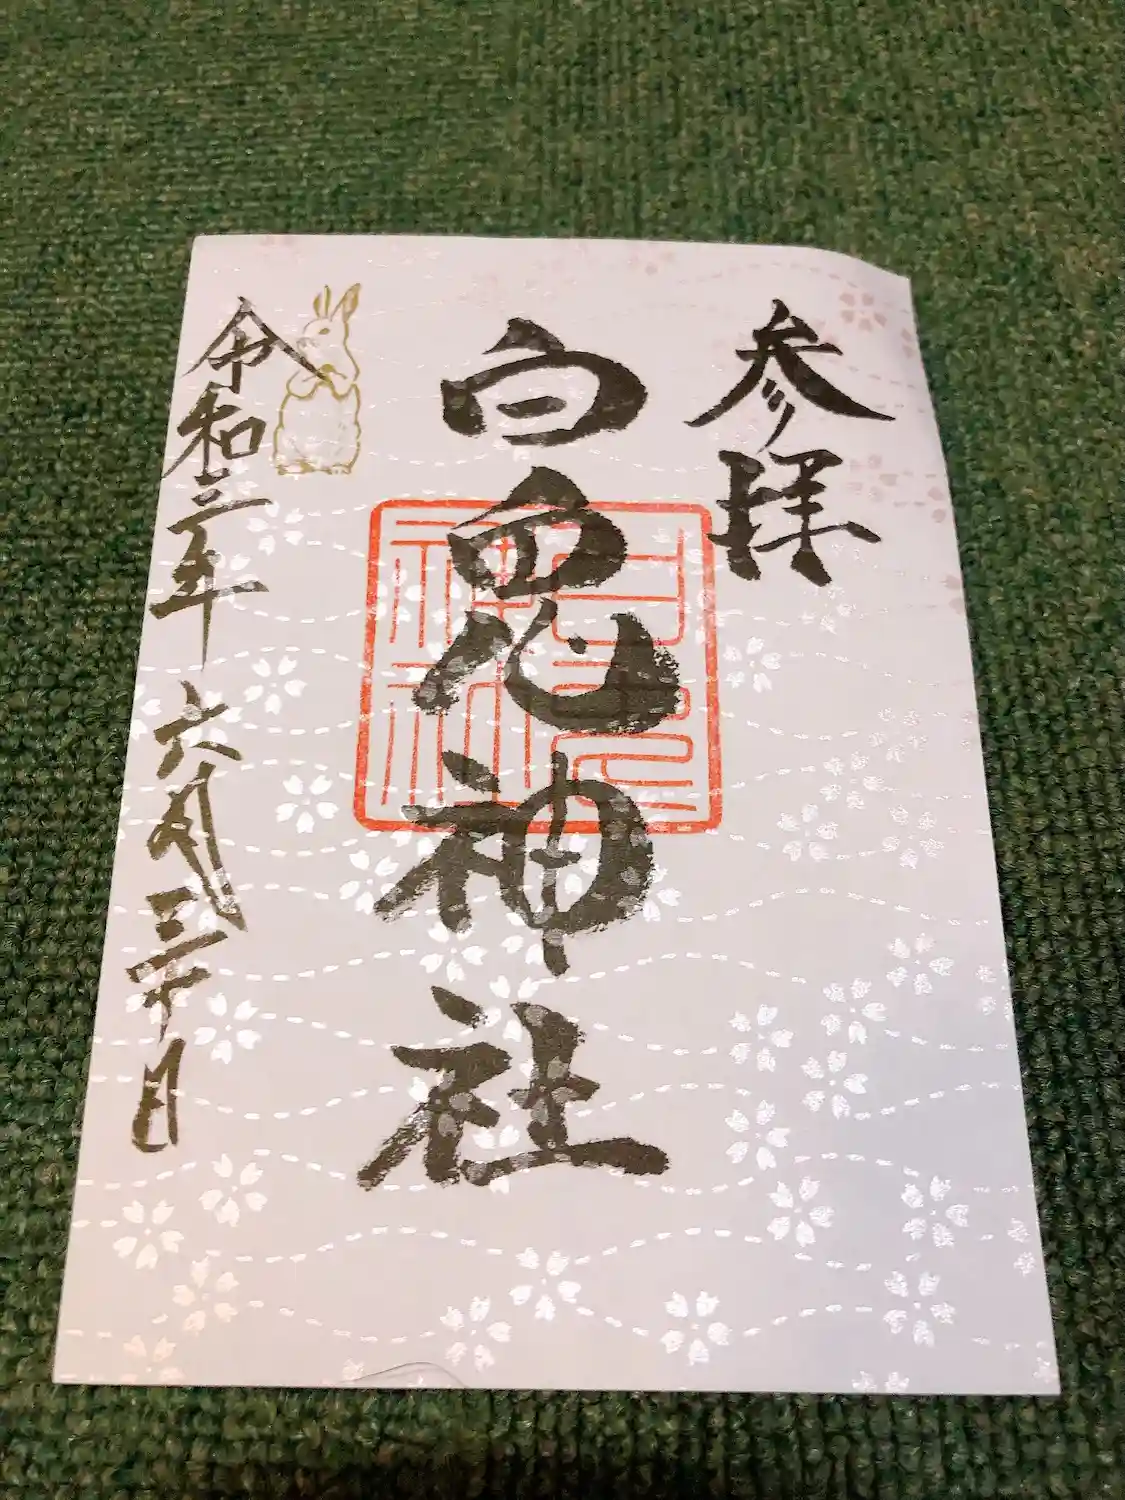 参拝
白兎神社
令和三年六月三十日
白兎神社